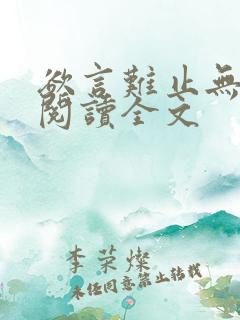 欲言難止無
閱讀全文
李荣燦
未经同意禁止转载